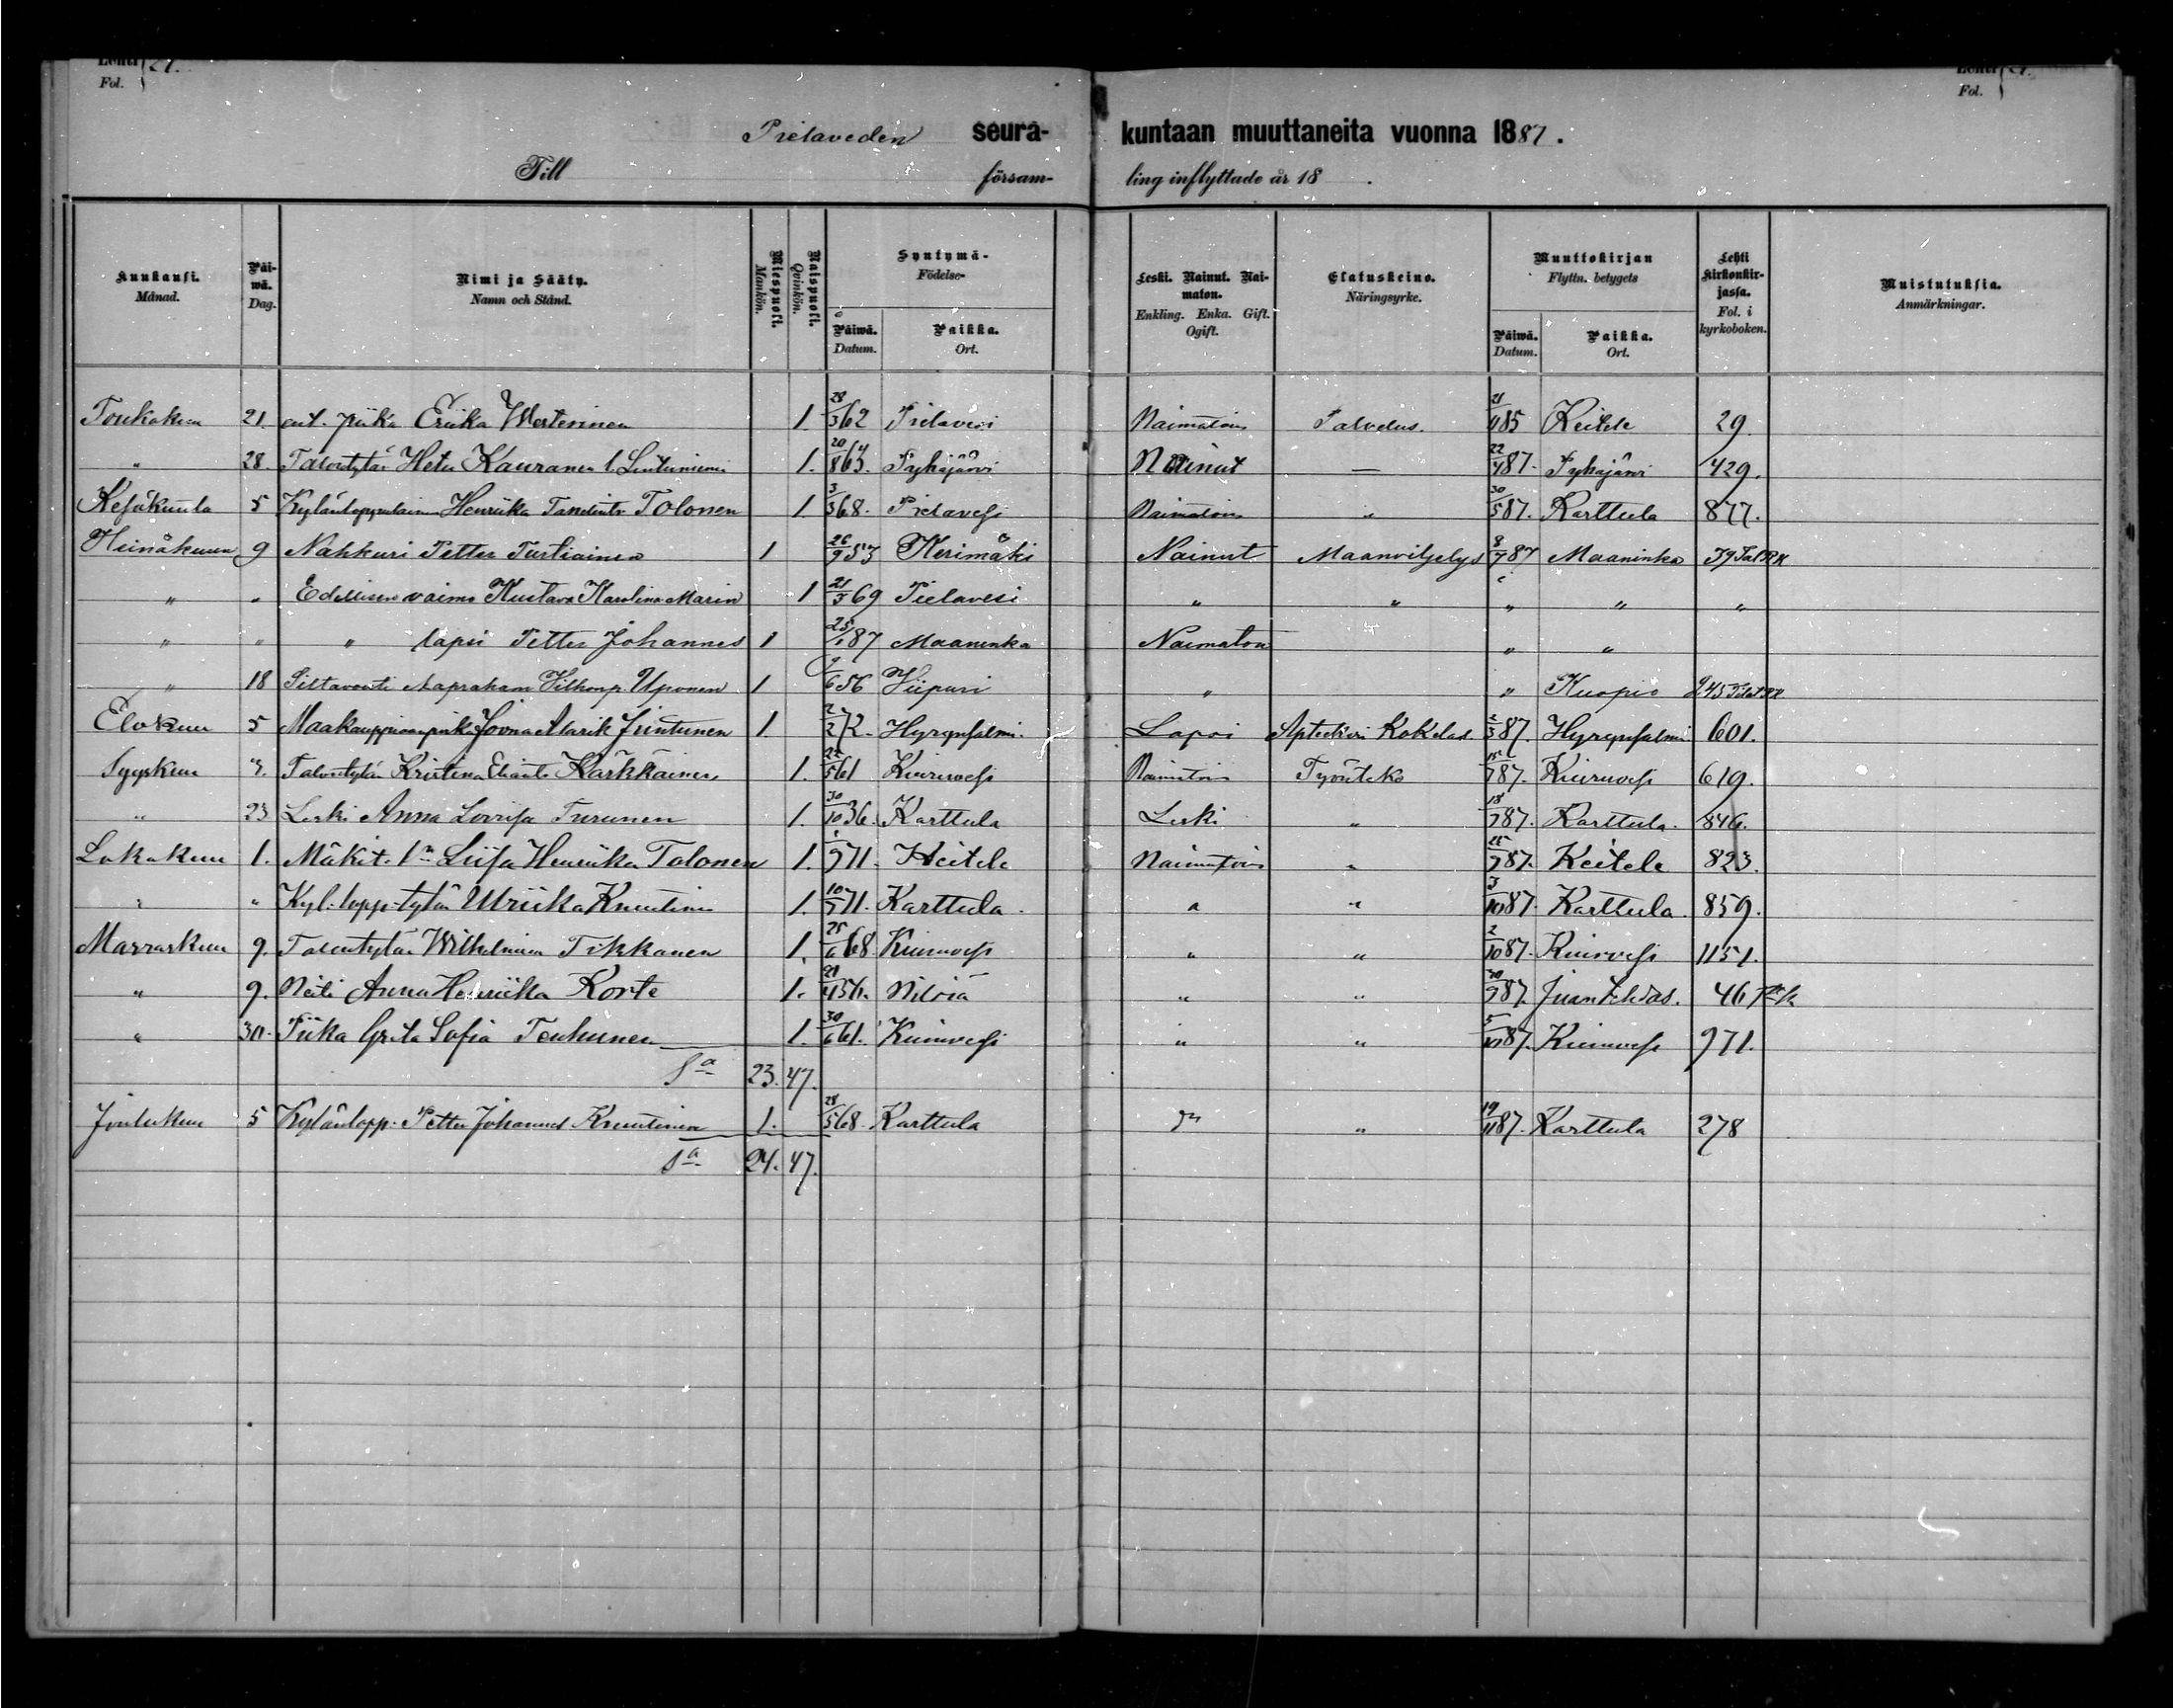 Lehti Fol. } 27.
Lehti Fol. } 27.
Pielaveden seura- kuntaan muuttaneita vuonna 1887.
Till församling inflyttade år 18 .
Kuukausi. Månad. Päiwä. Dag. Nimi ja Sääty. Namn och Stånd. Miespuoli. Mankön. Naispuoli. Qvinkön. Syntymä- Födelse- Päiwä. Datum. Paikka. Ort. Leski. Nainut. Naimaton. Enkling. Enka. Gift. Ogift. Elatuskeino. Näringsyrke. Muuttokirjan Flyttn. betygets Päiwä. Datum. Paikka. Ort. Lehti kirkonkirjassa. Fol. i kyrkoboken. Muistutuksia. Anmärkningar.
Toukokuu 21. ent. piika Eriika Westerinen 1. 28/3 62 Pielavesi Naimatoin Palvelus. 21/11 85 Keitele 29.
" 28. Talontytär Heta Kauranen 1. 20/8 63. Pyhäjärvi Nainut — 22/4 87. Pyhäjärvi 429.
Kesäkuuta 5 Henriika Tolonen 1 3/3 68. Pielavesi Naimatoin " 30/5 87. Karttula 877.
Heinäkuun 9 Nahkuri Petter Tartiainen 1 26/9 53 Kerimäki Nainut Maanviljelys 8/7 87 Maaninka
" " Edellisen vaimo Kustava Karolina Marin 1 21/5 69 Pielavesi " " " " "
" " " lapsi Petter Johannes 1 25/1 87 Maaninka Naimaton " "
" 18 Siltavouti Aapraham Uponen 1 9/6 56 Viipuri " " Kuopio
Elokuu 5 Juntunen 1 2/2 72. Hyrynsalmi. Lapsi 2/3 87. Hyrynsalmi 601.
Syyskuu 3. Talontytär Kristina Kärkkäinen 1. 22/5 61 Kiuruvesi Naimatoin Työnteko 15/7 87. Kiuruvesi 619.
" 23 Leski Anna Lovisa Turunen 1. 30/10 36. Karttula Leski " 18/7 87. Karttula. 846.
Lokakuu 1. Mäkit. Liisa Henriika Tolonen 1. 1/9 71. Keitele Naimatoin " 25/9 87. Keitele 823.
" " Kyl. lopp. tytär Ulriika Knuutinen 1. 10/5 71. Karttula. " " 3/10 87. Karttula. 859.
Marraskuu 9. Talontytär Wilhelmina Tikkanen 1. 25/6 68. Kiuruvesi " " 2/10 87. Kiuruvesi 1151.
" 9. Neiti Anna Henriika Korte 1. 21/4 56. Nilsiä " " 30/9 87. Juantehdas. 46
" 30. Piika Greta Sofia Tenhunen 1. 30/6 61. Kiuruvesi " " 5/10 87. Kiuruvesi 971.
Sa 23. 47.
Joulukuu 5 Kylänlopp. Petter Johannes Knuutinen 1. 28/5 68. Karttula " 19/11 87. Karttula 278
Sa 24. 47.